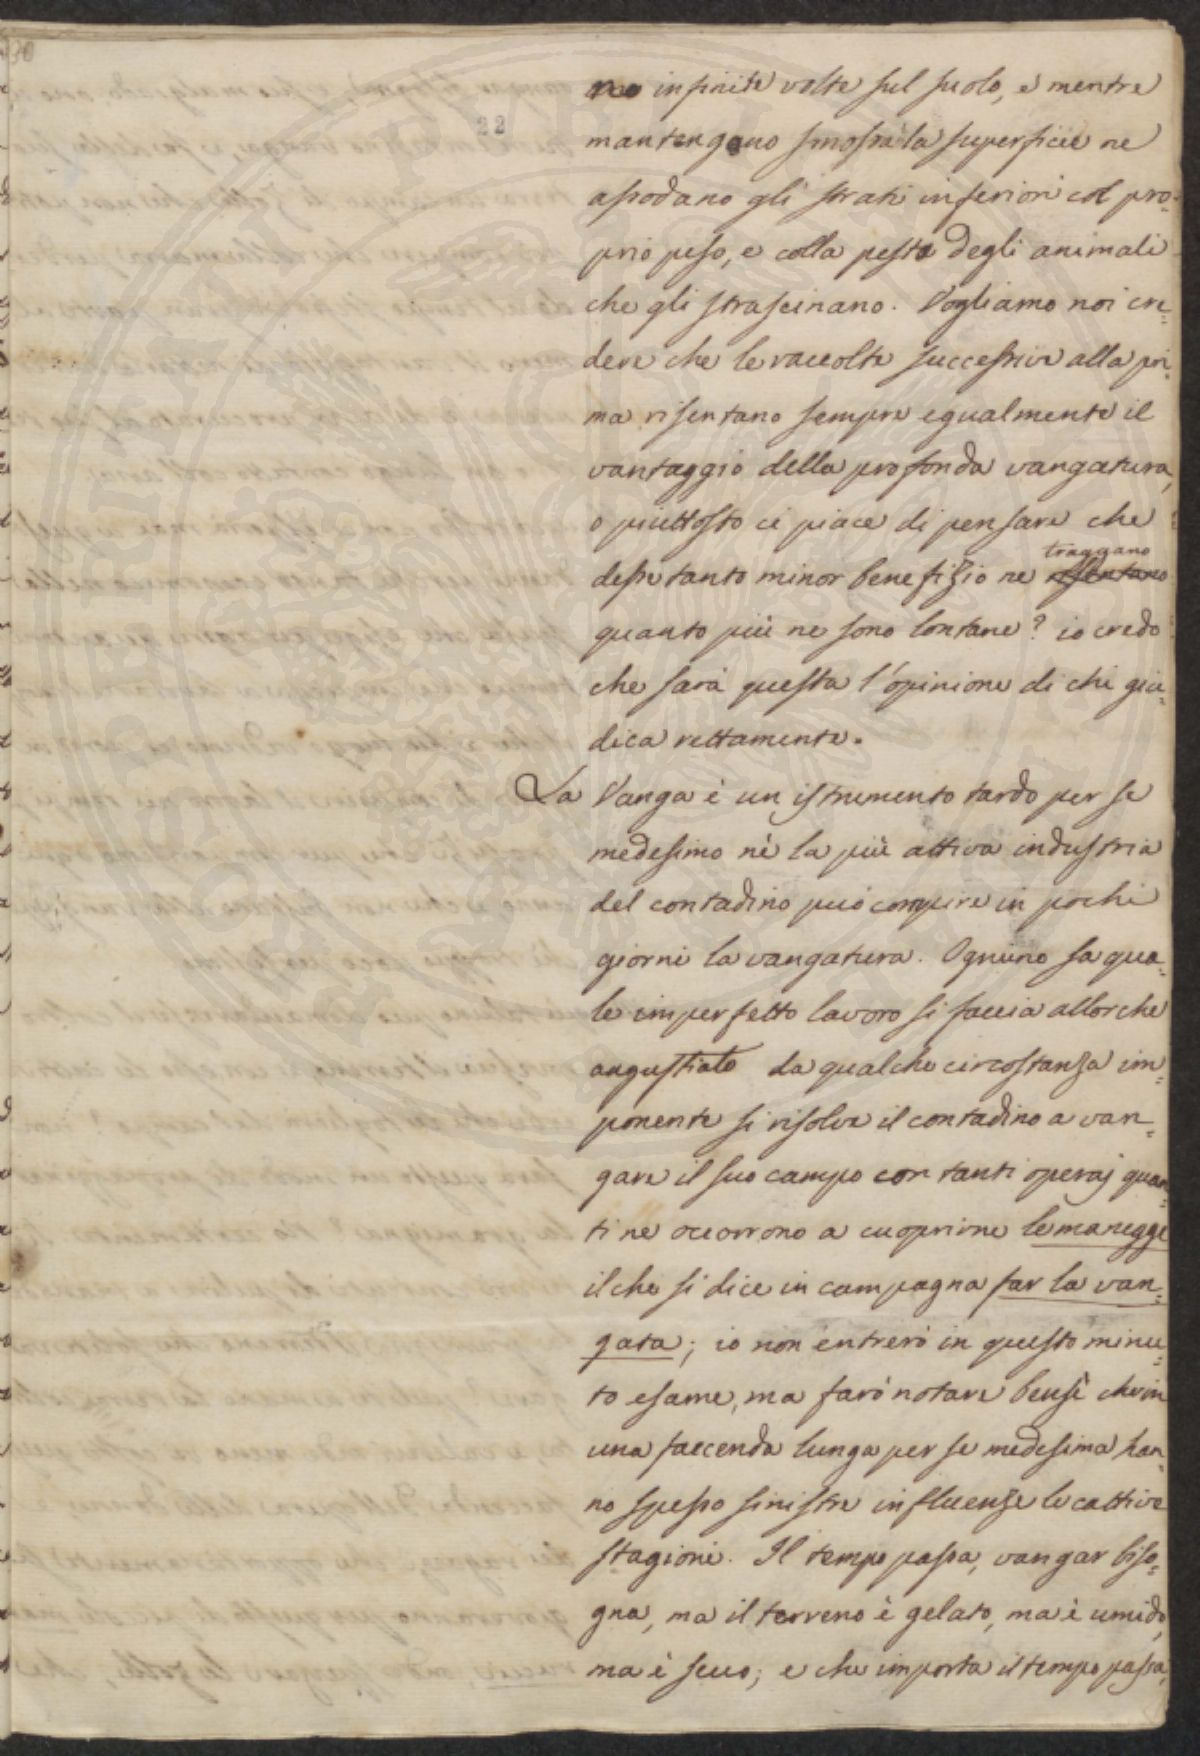 no infinite volte sul suolo, e mentre
mantengono smossa la superficie ne
assodano gli strati inferiori col pro=
prio peso, e colla pesta degli animali
che gli strascinano. Vogliamo noi cre=
dere che le raccolte successive alla pri=
ma risentano sempre egualmente il
vantaggio della profonda vangatura,
o piuttosto ci piace di pensare che
traggano
desse tanto minor benefizio ne risentano
quanto più ne sono lontane? io credo
che sarà questa l'opinione di chi giu=
dica rettamente.
La Vanga è un istrumento tardo per se
medesimo nè la più attiva industria
del contadino può compire in pochi
giorni la vangatura. Ognuno sa qua=
le imperfetto lavoro si faccia allorche
angustiato da qualche circostanza im=
ponente si risolve il contadino a van=
gare il suo campo con tanti operaj quan=
ti ne occorrono a cuoprirne le maregge
il che si dice in campagna far la van=
gata; io non entrerò in questo minu=
to esame, ma farò notare bensì che in
una faccenda lunga per se medesima han=
no spesso sinistre influenze le cattive
stagioni. Il tempo passa, vangar biso=
gna, ma il terreno è gelato, ma è umido,
ma è secco; e che importa il tempo passa,
22